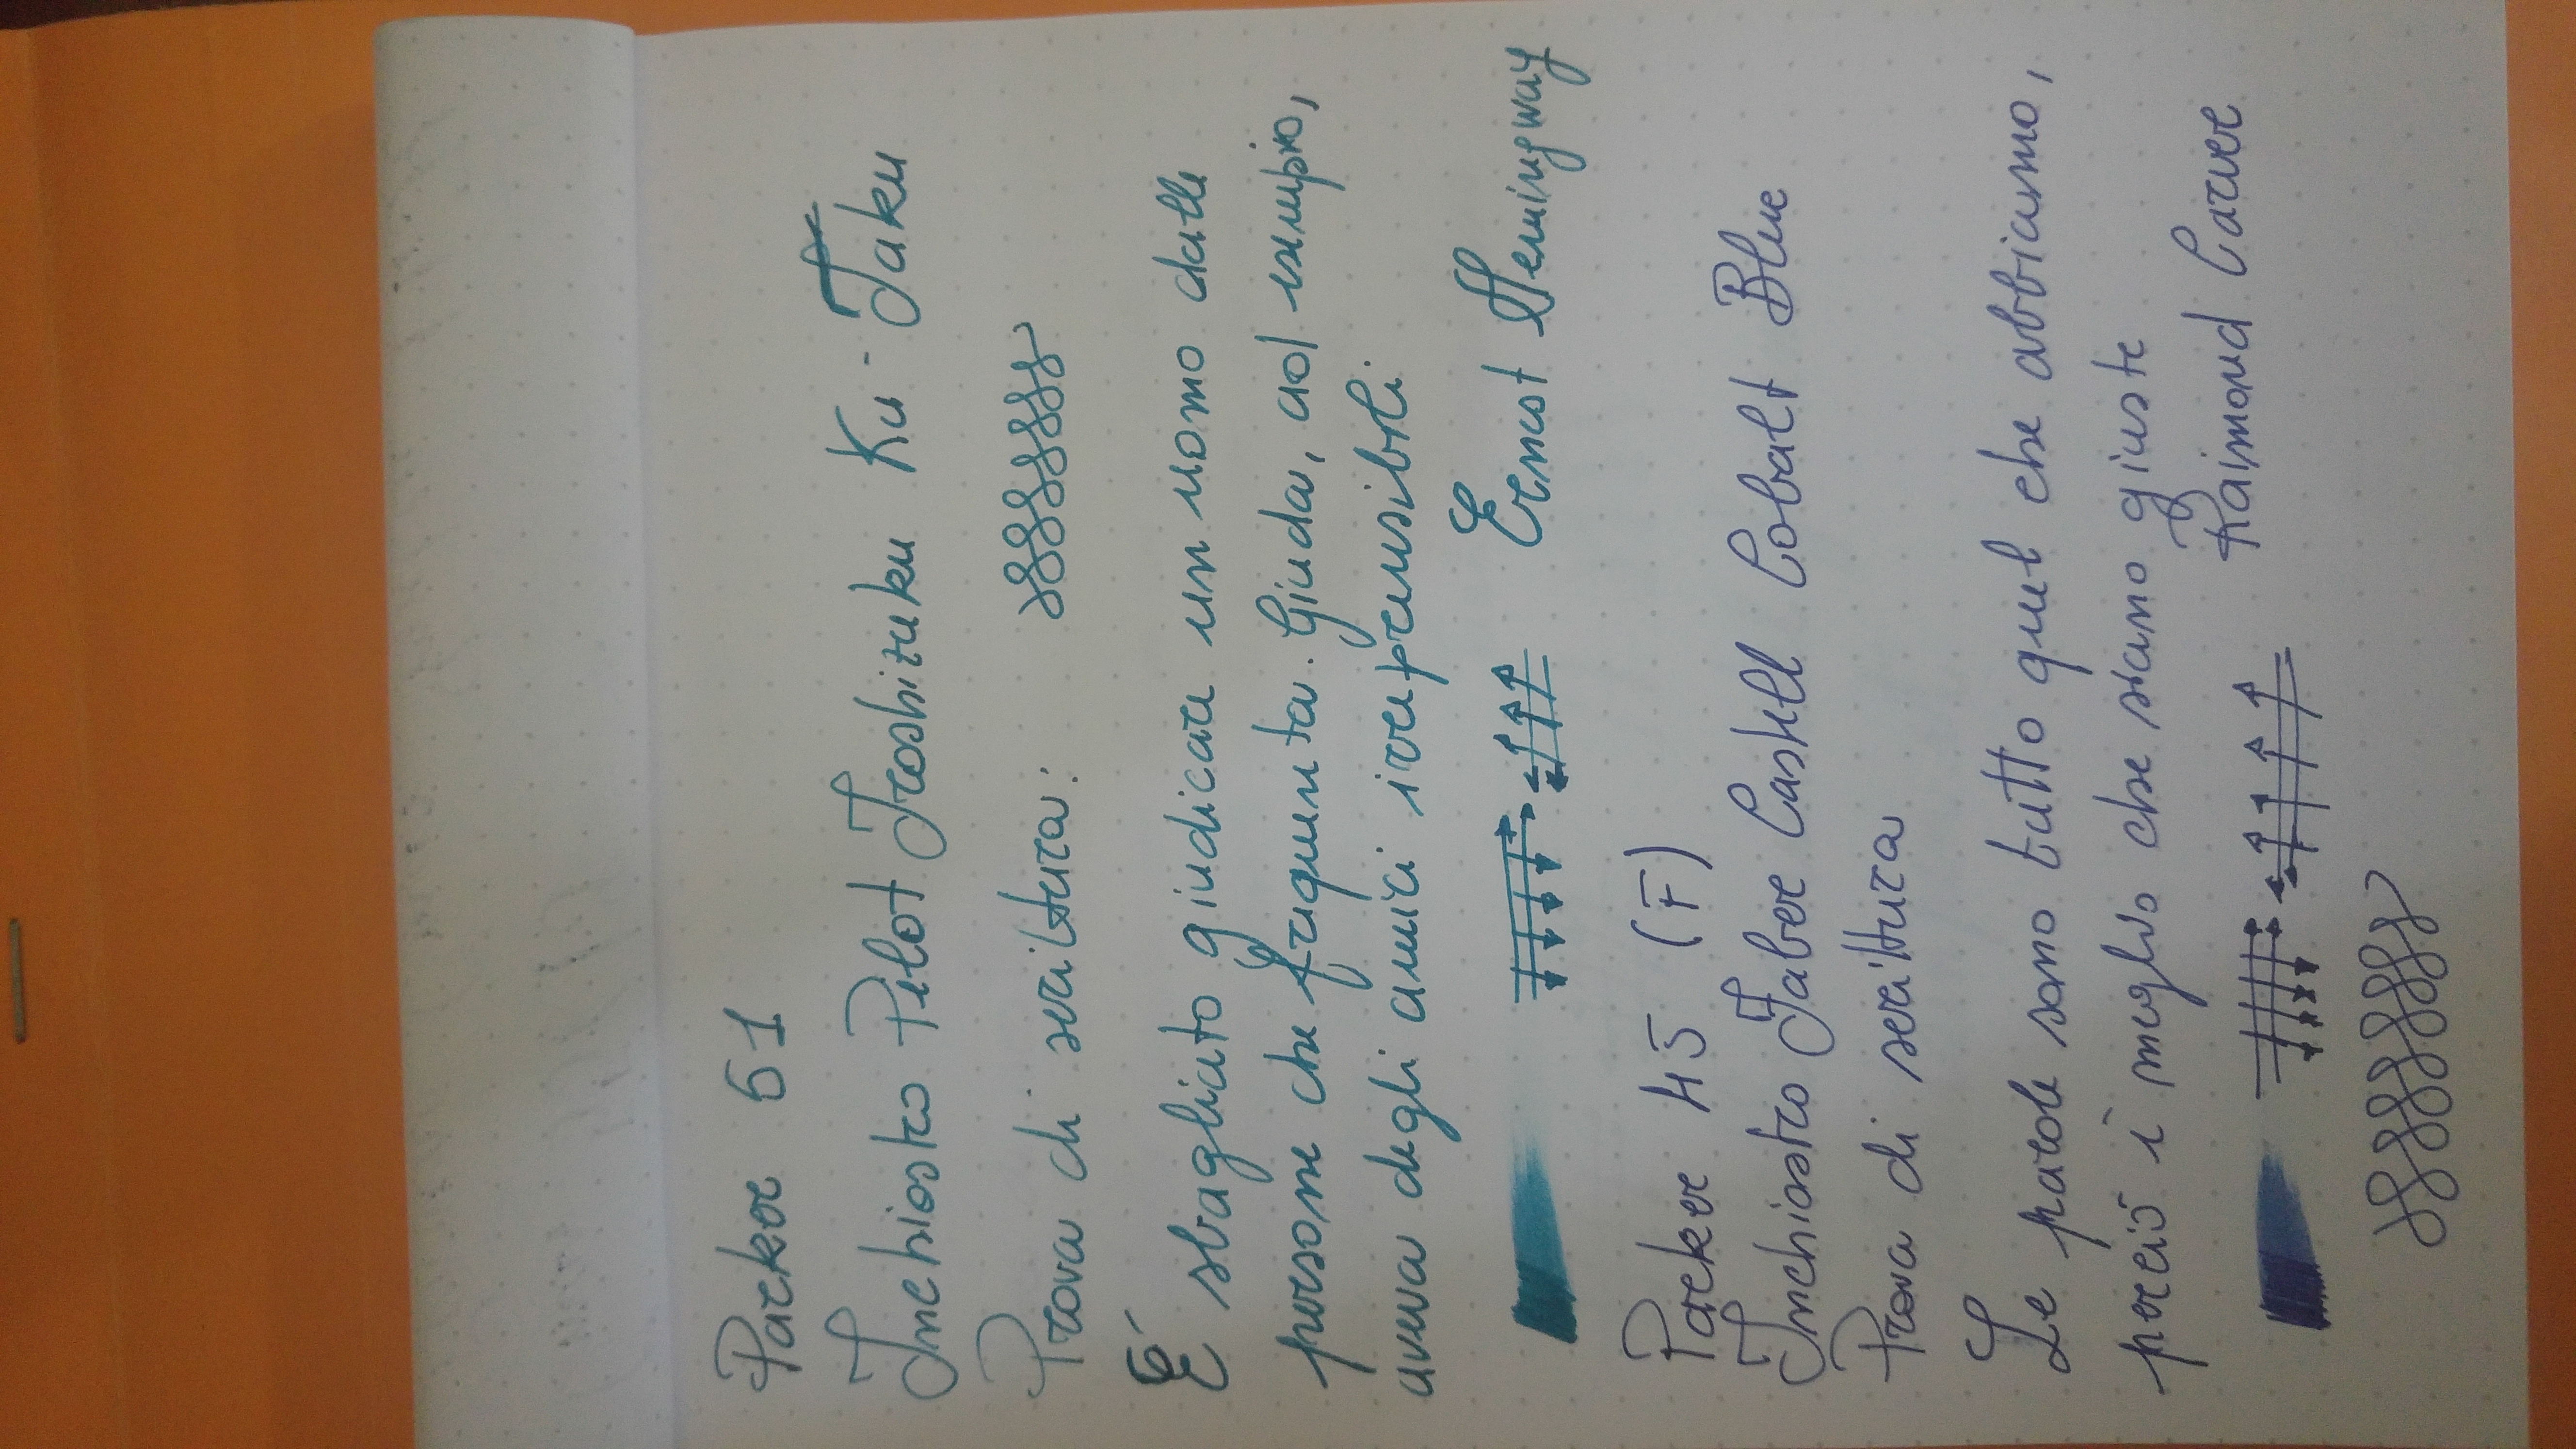 Parker 51
Inchiostro Pilot Iroshizuku Ku-Jaku
Prova di scrittura:
É sbagliato giudicare un uomo dalle
persone che frequenta. Giuda, ad esempio,
aveva degli amici irreprensibili.
Ernest Hemingway
Parker 45 (F)
Inchiostro Faber Castell Cobalt Blue
Prova di scrittura
Le parole sono tutto quel che abbiamo,
perciò è meglio che siano giuste
Raimond Carver